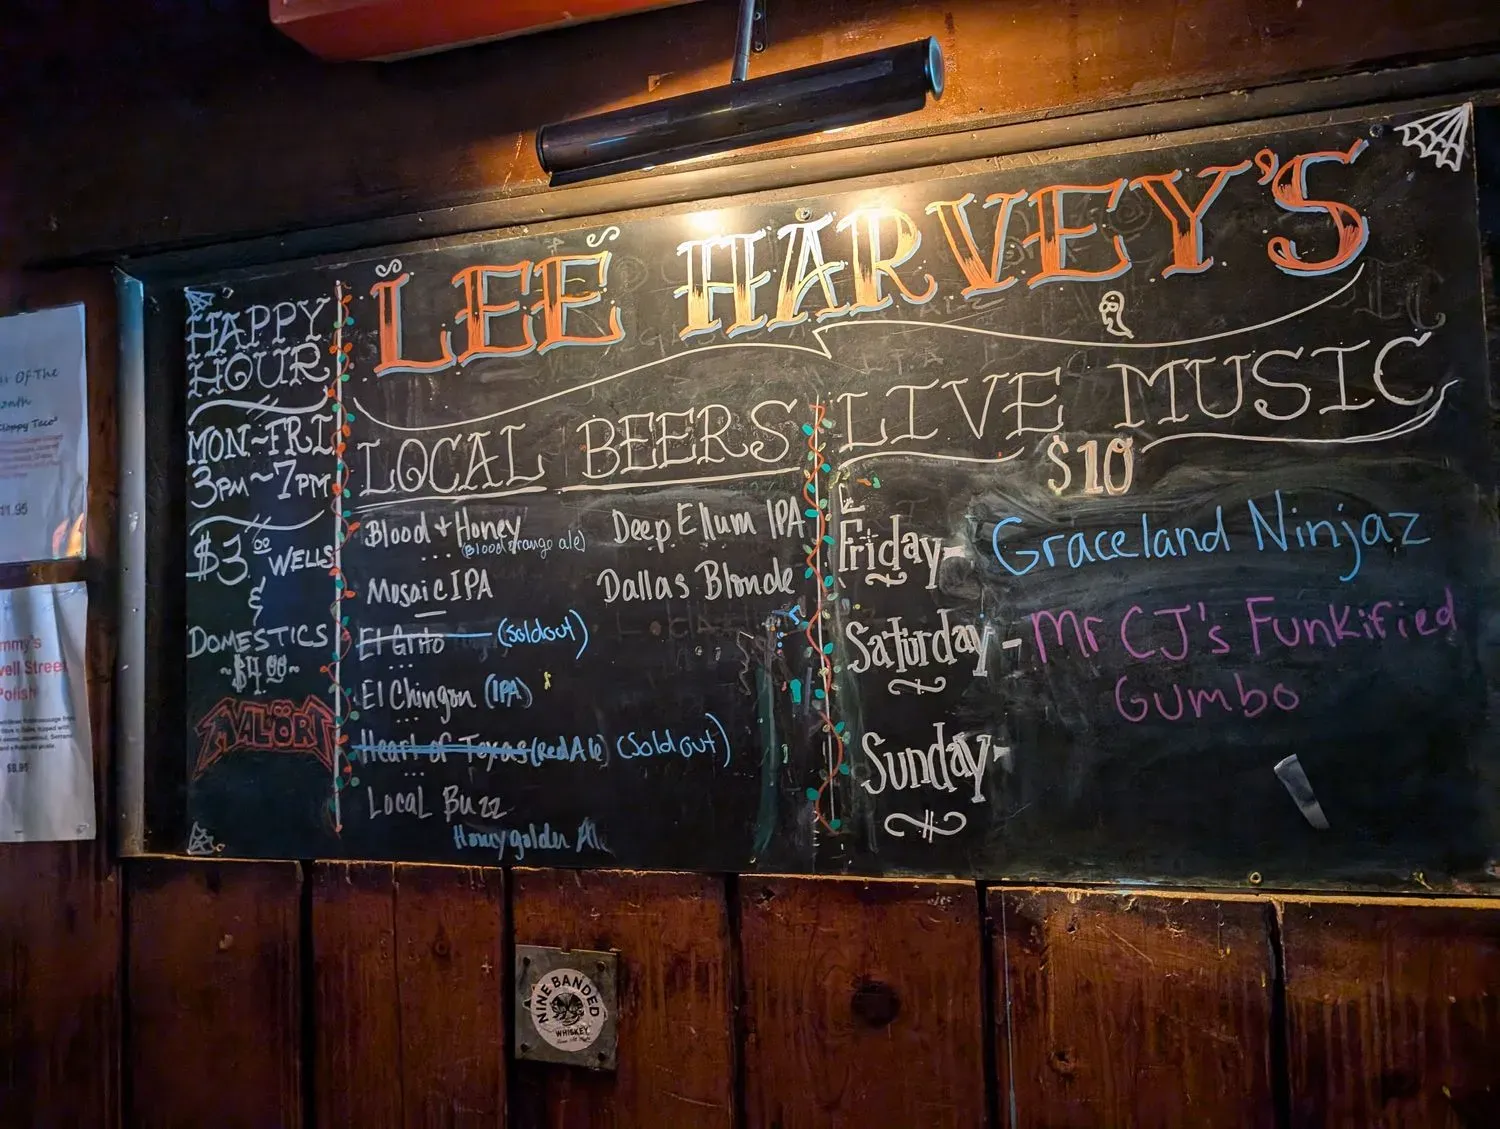 LEE HARVEY'S
HAPPY
HOUR
MON~FRI
3PM~7PM
$3.00 WELLS
&
DOMESTICS
~$4.00~
MALÖRT
LOCAL BEERS
Blood + Honey
(Blood orange ale)
Mosaic IPA
El Grito (Sold out)
El Chingon (IPA)
Heart of Texas (Red Ale) (Sold out)
Local Buzz
Honey golden Ale
Deep Ellum IPA
Dallas Blonde
LIVE MUSIC
$10
Friday- Graceland Ninjaz
Saturday - Mr CJ's Funkified
Gumbo
Sunday-
Of The
Sloppy Taco"
Street
Polish
$8.95
NINE BANDED
WHISKEY